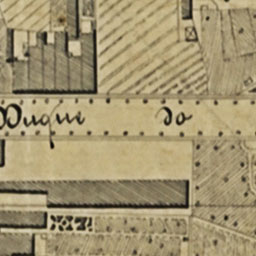 Duque do